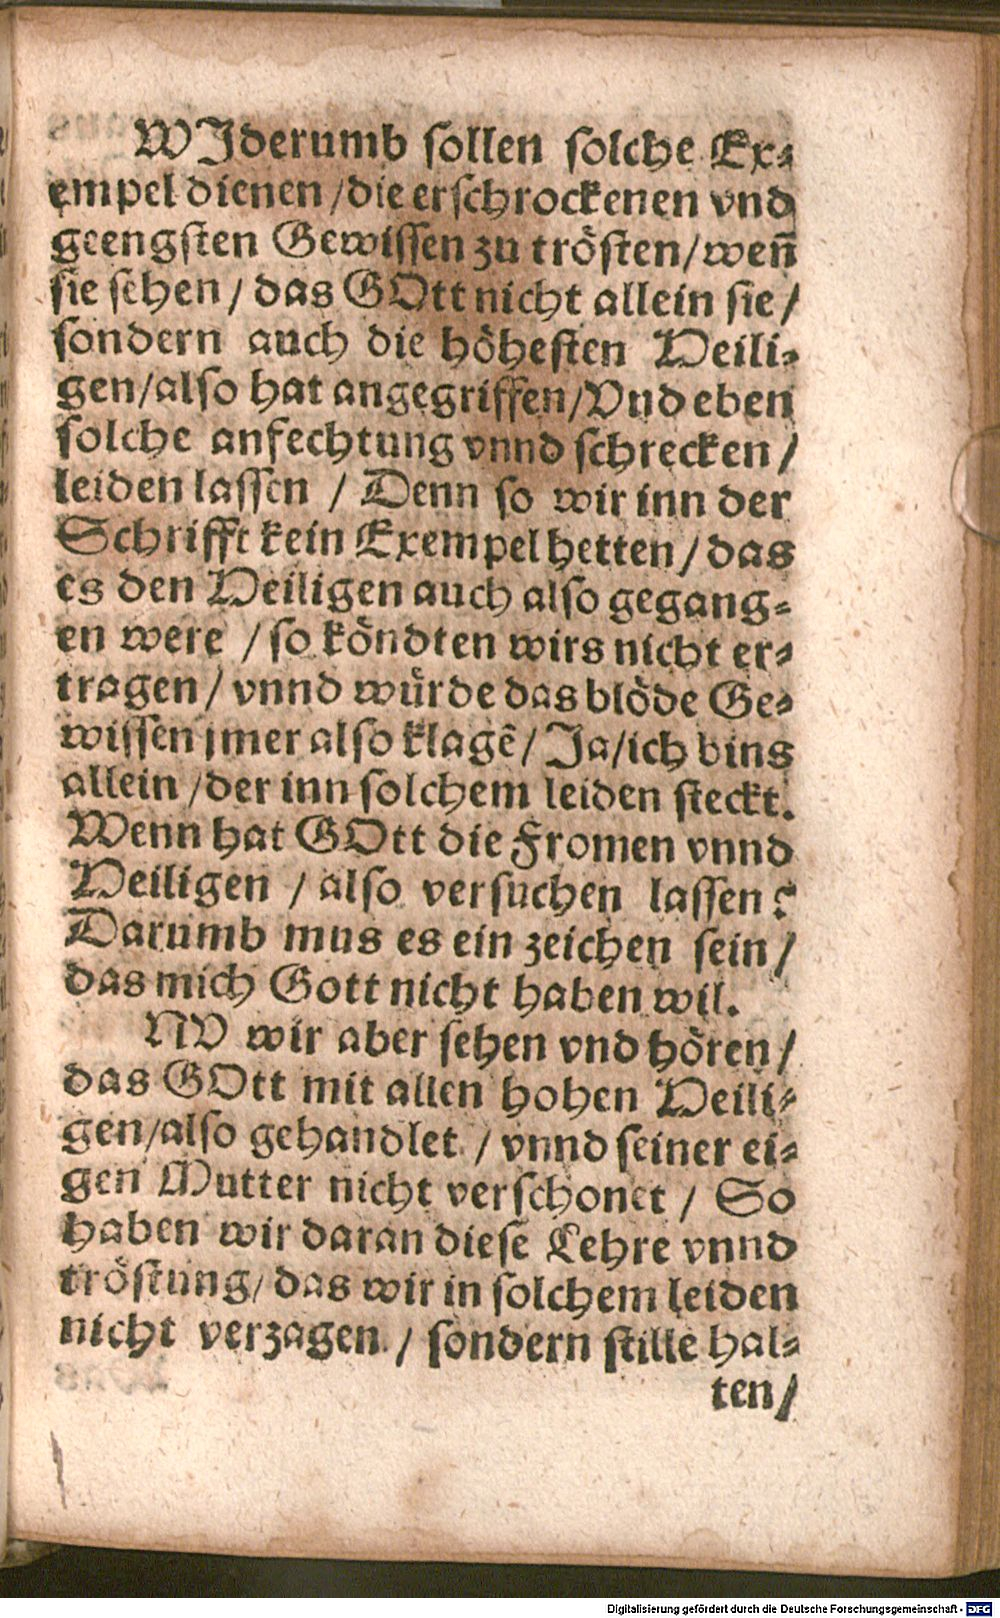 WJderumb sollen solche Ex⸗
empel dienen / die erschrockenen vnd
geengsten Gewissen zu trösten / weñ
sie sehen / das GOtt nicht allein sie /
sondern auch die höhesten Heili⸗
gen / also hat angegriffen / Vnd eben
solche anfechtung vnnd schrecken /
leiden lassen / Denn so wir inn der
Schrifft kein Exempel hetten / das
es den Heiligen auch also gegang⸗
en were / so köndten wirs nicht er⸗
tragen / vnnd würde das blöde Ge⸗
wissen jmer also klagẽ / Ja / ich bins
allein / der inn solchem leiden steckt.
Wenn hat GOtt die Fromen vnnd
Heiligen / also versuchen lassen?
Darumb mus es ein zeichen sein /
das mich Gott nicht haben wil.
NV wir aber sehen vnd hören /
das GOtt mit allen hohen Heili⸗
gen / also gehandlet / vnnd seiner ei⸗
gen Mutter nicht verschonet / So
haben wir daran diese Lehre vnnd
tröstung / das wir in solchem leiden
nicht verzagen / sondern stille hal⸗
ten /
Digitalisierung gefördert durch die Deutsche Forschungsgemeinschaft - DFG